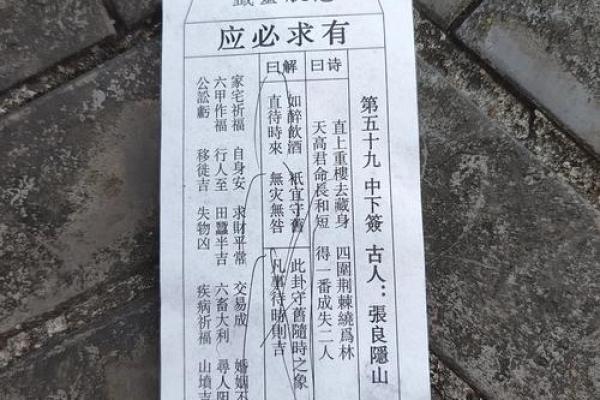 有求必应
第五十九 中下簽 古人：張良隱山
诗曰
直上重樓去藏身 四圍荆棘繞爲林
天高君命長和短 得一番成失二人
解曰
如醉飲酒 衹宜守舊
直待時來 無灾無咎
此卦守舊隨時之象
凡事待時則吉
家宅祈福 自身安 求財平常 交易成 婚姻不
六甲作福 行人至 田蠶半吉 六畜大利 尋人阻
公訟虧 移徙吉 失物凶 疾病祈福 山墳吉